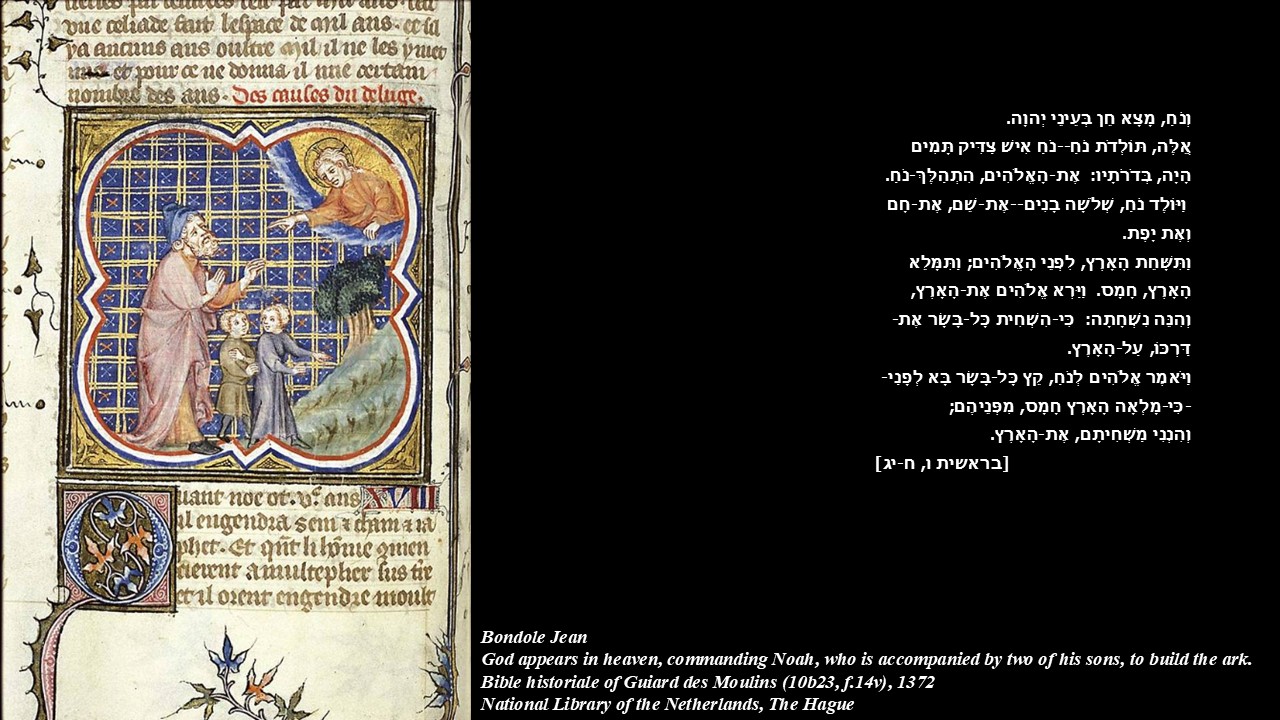 vue celiade fait lespace de mil ans. et sil
ya aucuns ans oultre mil il ne les y met
et pour ce ne donna il une certain
nombre des ans. Des causes du deluge.
Quant noe ot. vᶜ. ans XVIII
il engendra sem & cham & ia
phet. Et qñt li hōme 
a multeplier sus tre
et il orent engendre moult
וְנֹחַ, מָצָא חֵן בְּעֵינֵי יְהוָה.
אֵלֶּה, תּוֹלְדֹת נֹחַ--נֹחַ אִישׁ צַדִּיק תָּמִים
הָיָה, בְּדֹרֹתָיו: אֶת-הָאֱלֹהִים, הִתְהַלֶּךְ-נֹחַ.
וַיּוֹלֶד נֹחַ, שְׁלֹשָׁה בָנִים--אֶת-שֵׁם, אֶת-חָם
וְאֶת יָפֶת.
וַתִּשָּׁחֵת הָאָרֶץ, לִפְנֵי הָאֱלֹהִים; וַתִּמָּלֵא
הָאָרֶץ, חָמָס. וַיַּרְא אֱלֹהִים אֶת-הָאָרֶץ,
וְהִנֵּה נִשְׁחָתָה: כִּי-הִשְׁחִית כָּל-בָּשָׂר אֶת-
דַּרְכּוֹ, עַל-הָאָרֶץ.
וַיֹּאמֶר אֱלֹהִים לְנֹחַ, קֵץ כָּל-בָּשָׂר בָּא לְפָנַי-
-כִּי-מָלְאָה הָאָרֶץ חָמָס, מִפְּנֵיהֶם;
וְהִנְנִי מַשְׁחִיתָם, אֶת-הָאָרֶץ.
[בראשית ו, ח-יג]
Bondole Jean
God appears in heaven, commanding Noah, who is accompanied by two of his sons, to build the ark.
Bible historiale of Guiard des Moulins (10b23, f.14v), 1372
National Library of the Netherlands, The Hague